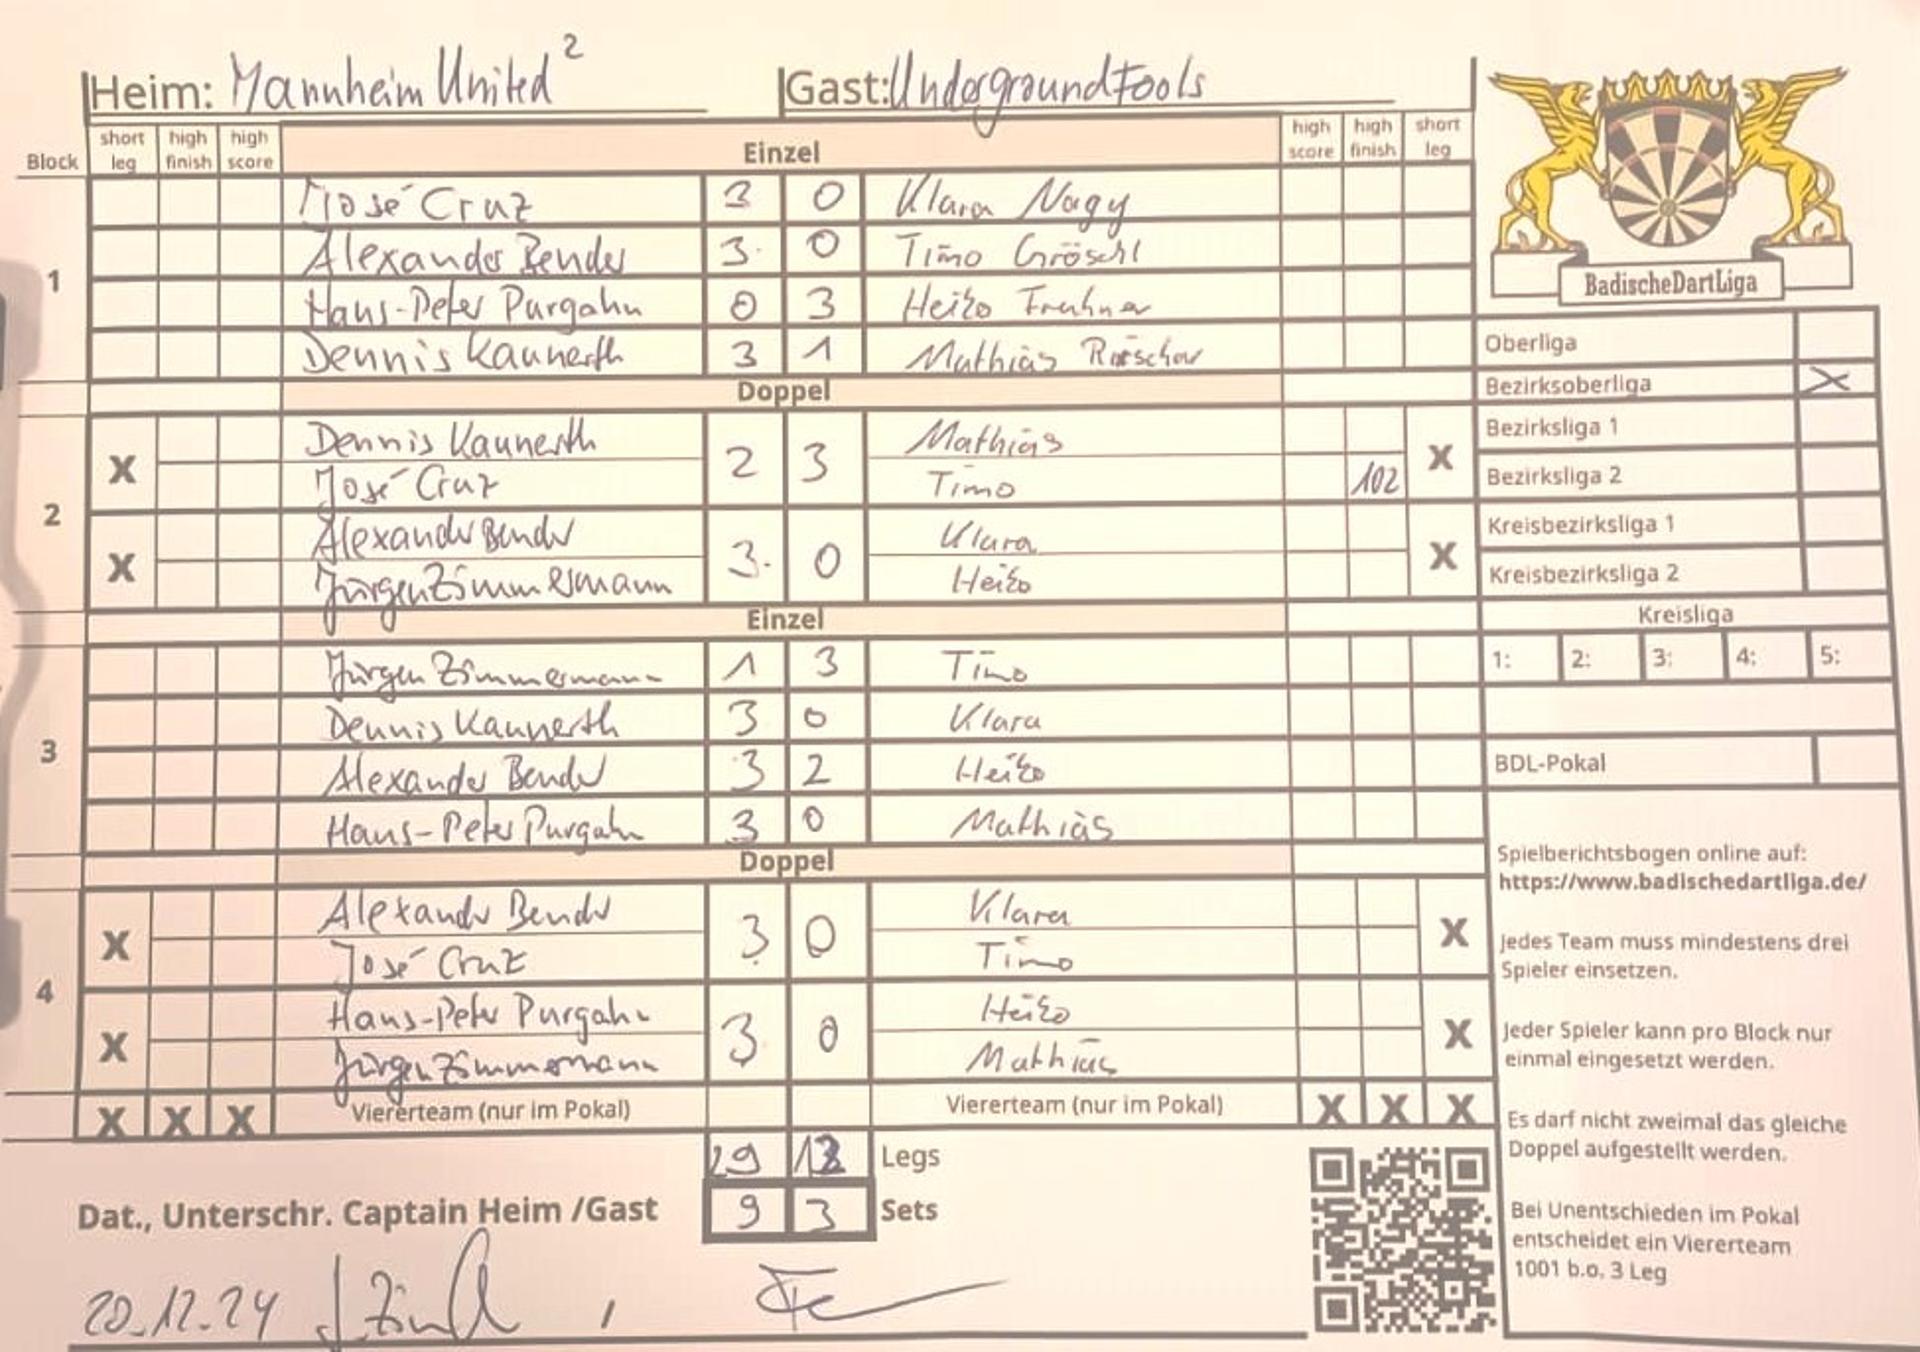 Heim: Mannheim United 2 Gast: Undergroundfools
Block short leg high finish high score Einzel high score high finish short leg
1
José Cruz 3 0 Klara Nagy
Alexander Bender 3 0 Timo Gröschl
Hans-Peter Purgahn 0 3 Heiko
Dennis Kaunerth 3 1 Mathias
Doppel
2
X Dennis Kaunerth 2 3 Mathias X
José Cruz Timo 102
X Alexander Bender 3 0 Klara X
Jürgen Zimmermann Heiko
Einzel
3
Jürgen Zimmermann 1 3 Timo
Dennis Kaunerth 3 0 Klara
Alexander Bender 3 2 Heiko
Hans-Peter Purgahn 3 0 Mathias
Doppel
4
X Alexander Bender 3 0 Klara X
José Cruz Timo
X Hans-Peter Purgahn 3 0 Heiko X
Jürgen Zimmermann Mathias
X X X Viererteam (nur im Pokal) Viererteam (nur im Pokal) X X X
29 12 Legs
9 3 Sets
Dat., Unterschr. Captain Heim /Gast
20.12.24
BadischeDartLiga
Oberliga
Bezirksoberliga X
Bezirksliga 1
Bezirksliga 2
Kreisbezirksliga 1
Kreisbezirksliga 2
Kreisliga
1: 2: 3: 4: 5:
BDL-Pokal
Spielberichtsbogen online auf:
https://www.badischedartliga.de/
Jedes Team muss mindestens drei
Spieler einsetzen.
Jeder Spieler kann pro Block nur
einmal eingesetzt werden.
Es darf nicht zweimal das gleiche
Doppel aufgestellt werden.
Bei Unentschieden im Pokal
entscheidet ein Viererteam
1001 b.o. 3 Leg